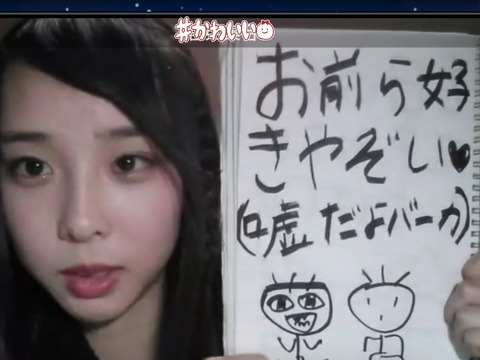 #かわいい
お前ら好
きやぞい♥
(嘘だよバーカ)